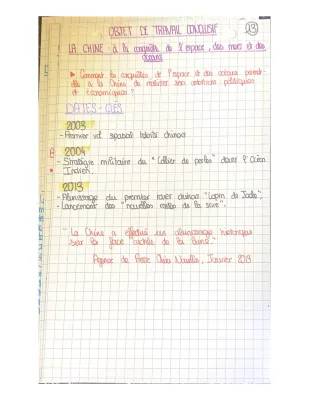 OBJET DE TRAVAIL CONCLUSIF
LA CHINE : à la conquête de l'espace, des mers et des
océans
► Comment la conquête de l'espace et des océans permet-
elle à la Chine de réaliser ses ambitions politiques
et économiques ?
DATES-CLÉS
2003
- Premier vol spatial habité chinois
2004
- Stratégie militaire du "Collier de perles" dans l'Océan
Indien.
2013
- Alunissage du premier rover chinois "Lapin de Jade".
- Lancement des "nouvelles routes de la soie".
"La Chine a effectué un alunissage historique
sur la face cachée de la Lune."
Agence de Presse Chine Nouvelle, Janvier 2019